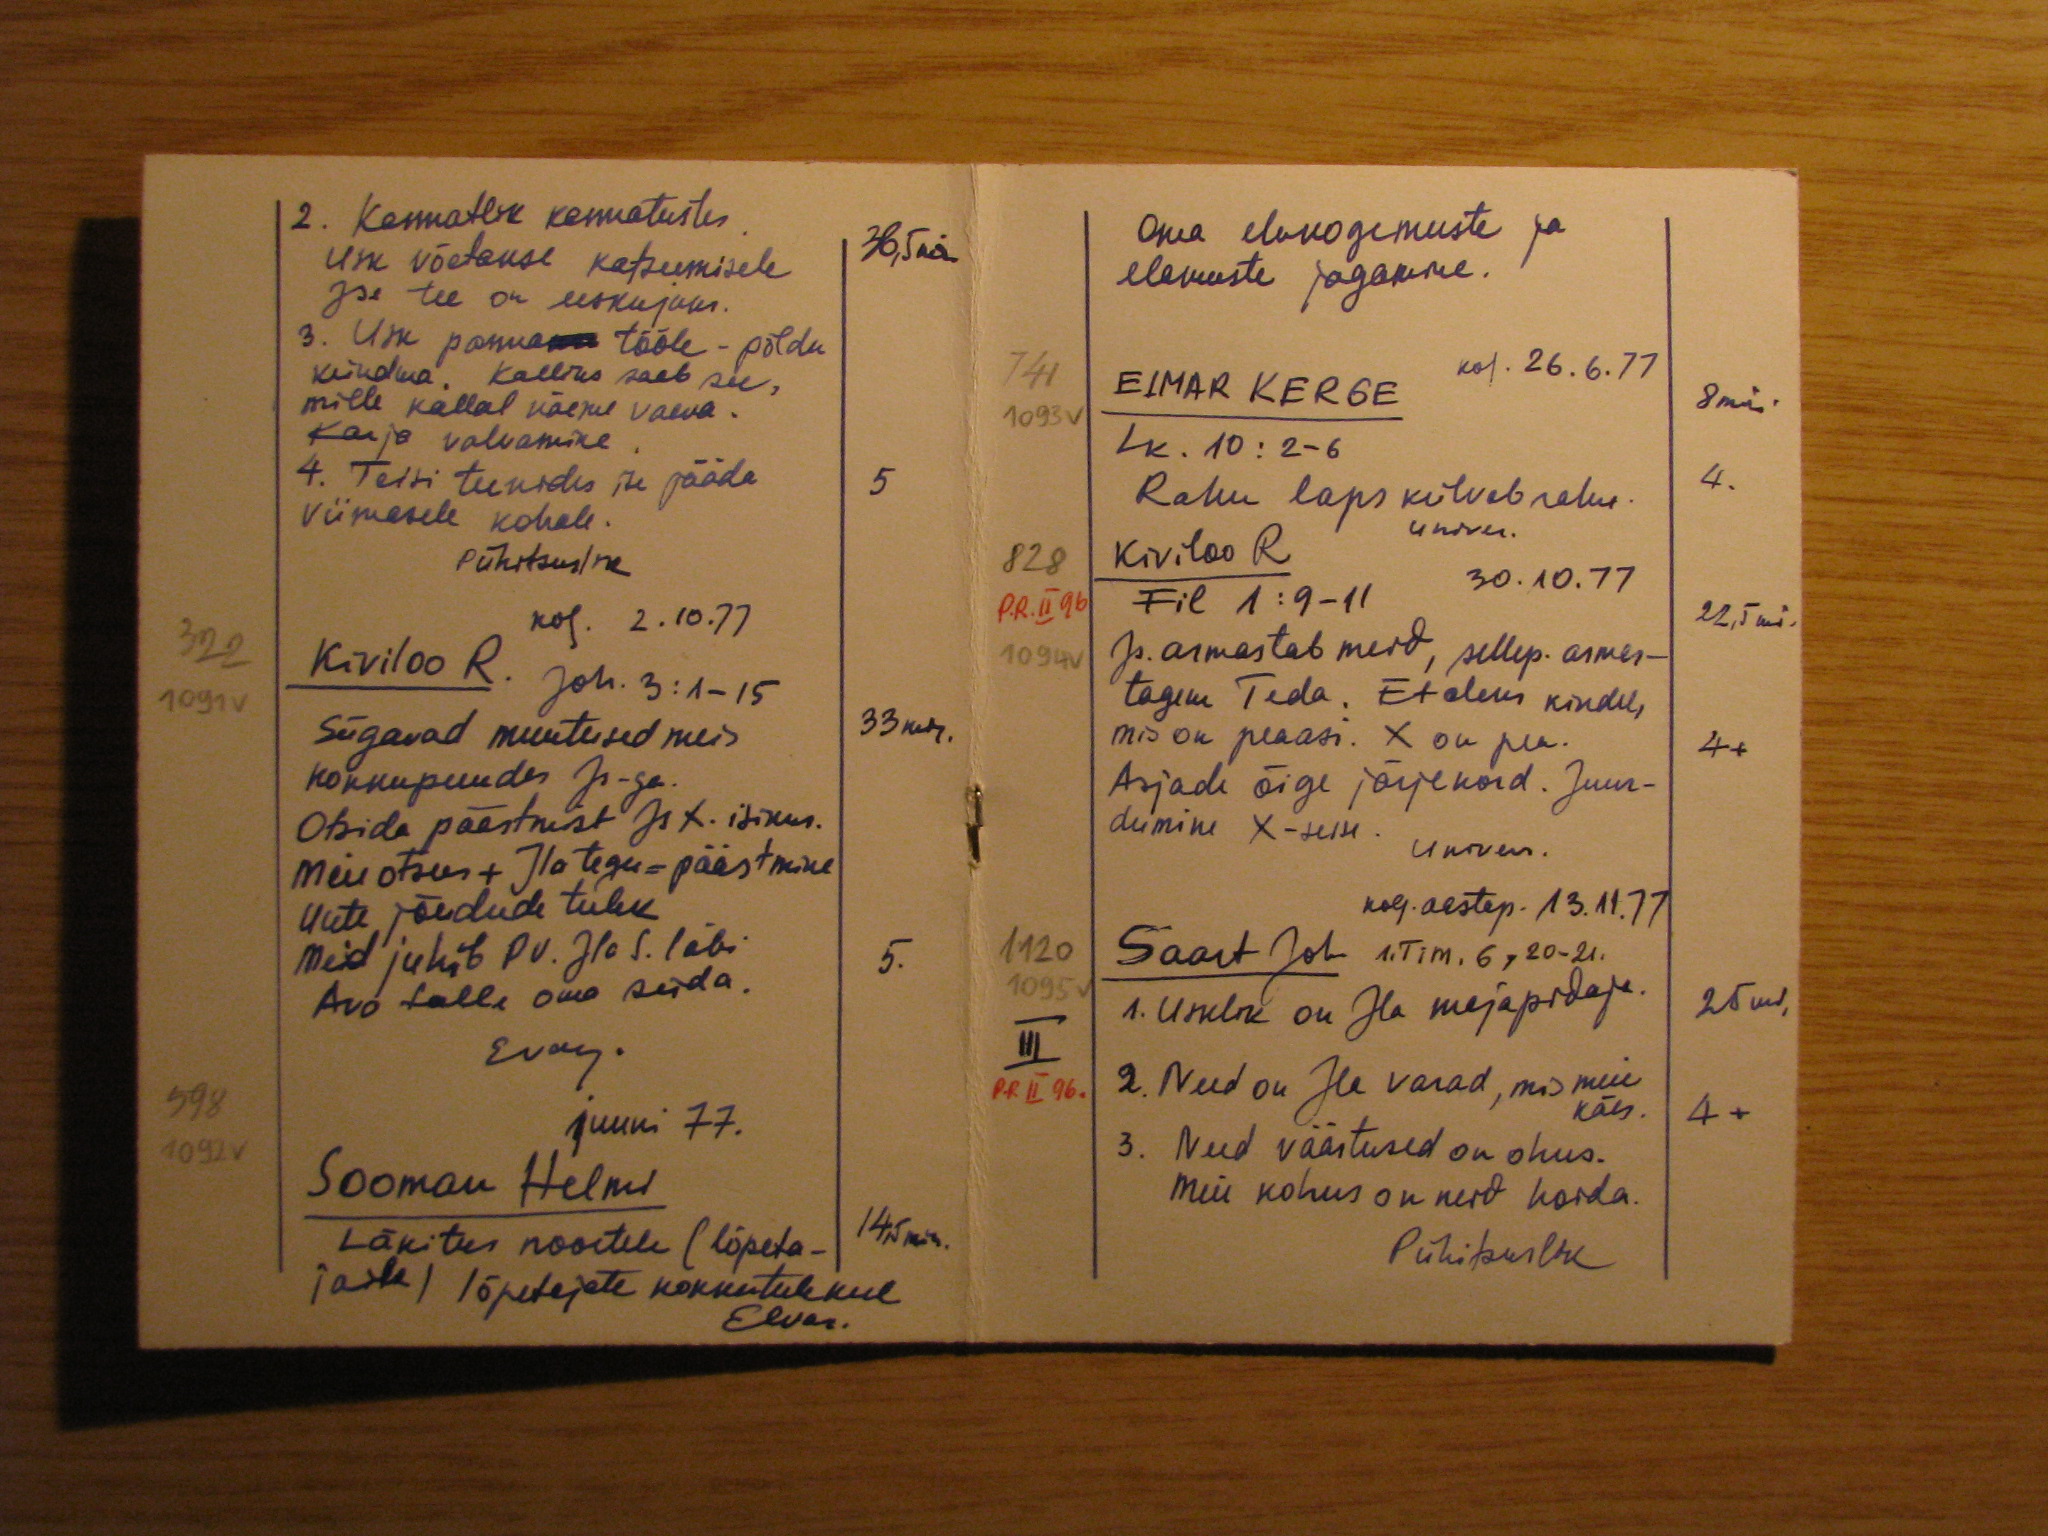 2. Kannatlik kannatustes.
36,5 min
Usk võetakse katsumisele
Jse tee on eeskujuks.
3. Usk panna tööle - põldu
kündma. Kalliks saab see,
mille kallal näeme vaeva.
Karja valvamine.
4. Teisi teenides ise jääda
5
viimasele kohale.
Pühitsuslik
kog. 2.10.77
322
Kiviloo R. Joh. 3:1-15
1091v
Sügavad muutused meis
33 min.
kokkupuudes Js-ga.
Otsida päästmist Js X. isikus.
Meie otsus + Jla tegu = päästmine
Uute jõudude tulek
Meid juhib Pv. Jla S. läbi
5.
Ava talle oma süda.
Evang.
598
juuni 77.
1092v
Sooman Helmi
Läkitus noortele (lõpeta-
14,5 min.
jaile) lõpetajate kokkutulekul
Elvas.
Oma elukogemuste ja
elamuste jagamine.
741
kog. 26.6.77
EIMAR KERGE
8 min.
1093v
Lk. 10:2-6
Rahu laps külvab rahu.
4.
Univer.
828
Kiviloo R
30.10.77
P.R. II 96
Fil 1:9-11
22,5 min.
1094v
Js. armastab meid, sellep. armas-
tagem Teda. Et oleks kindel,
mis on peaasi. X on pea.
4+
Asjade õige järjekord. Juur-
dumine X-sesse.
Univers.
kog. aastap. 13.11.77
1120
Saart Joh 1.Tim. 6, 20-21.
1095v
1. Usklik on Jla majapidaja.
25 min,
III
P.R. II 96.
2. Need on Jla varad, mis meie
käes.
4+
3. Need väärtused on ohus.
Meie kohus on neid hoida.
Pühitsuslik